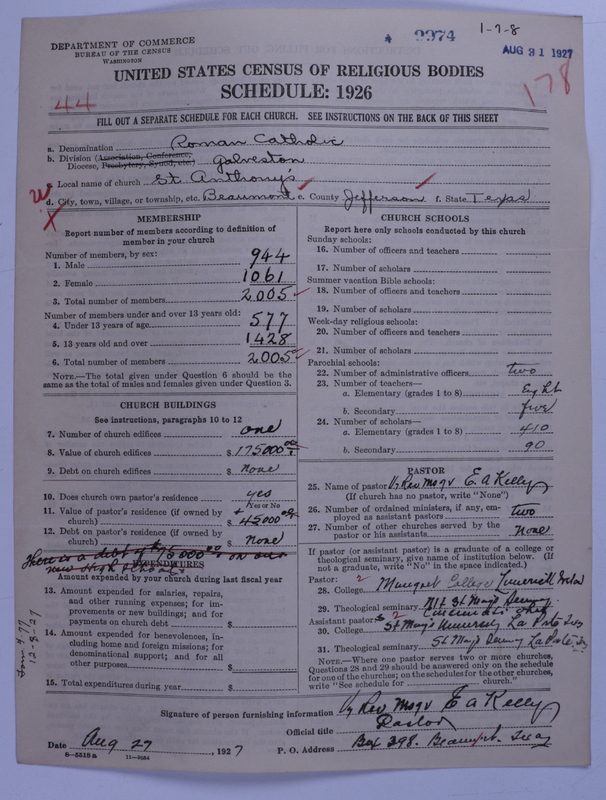 1-7-8
9974
AUG 31 1927
178
44
DEPARTMENT OF COMMERCE
BUREAU OF THE CENSUS
WASHINGTON
UNITED STATES CENSUS OF RELIGIOUS BODIES
SCHEDULE: 1926
FILL OUT A SEPARATE SCHEDULE FOR EACH CHURCH. SEE INSTRUCTIONS ON THE BACK OF THIS SHEET
a. Denomination Roman Catholic
b. Division (Association, Conference, Diocese, Presbytery, Synod, etc.) Galveston
c. Local name of church St Anthony's
d. City, town, village, or township, etc. Beaumont e. County Jefferson f. State Texas
MEMBERSHIP
Report number of members according to definition of
member in your church
Number of members, by sex:
1. Male 944
2. Female 1061
3. Total number of members 2005
Number of members under and over 13 years old:
4. Under 13 years of age 577
5. 13 years old and over 1428
6. Total number of members 2005
NOTE.—The total given under Question 6 should be the
same as the total of males and females given under Question 3.
CHURCH BUILDINGS
See instructions, paragraphs 10 to 12
7. Number of church edifices one
8. Value of church edifices $175000
9. Debt on church edifices $None
10. Does church own pastor's residence yes
Yes or No
11. Value of pastor's residence (if owned by
church) $45000
12. Debt on pastor's residence (if owned by
church) $None
There is a debt of $75000 on our
new High School
EXPENDITURES
Amount expended by your church during last fiscal year
13. Amount expended for salaries, repairs,
and other running expenses; for im-
provements or new buildings; and for
payments on church debt $
14. Amount expended for benevolences, in-
cluding home and foreign missions; for
denominational support; and for all
other purposes $
15. Total expenditures during year $
12-8-27
CHURCH SCHOOLS
Report here only schools conducted by this church
Sunday schools:
16. Number of officers and teachers
17. Number of scholars
Summer vacation Bible schools:
18. Number of officers and teachers
19. Number of scholars
Week-day religious schools:
20. Number of officers and teachers
21. Number of scholars
Parochial schools:
22. Number of administrative officers two
23. Number of teachers—
a. Elementary (grades 1 to 8) Eight
b. Secondary five
24. Number of scholars—
a. Elementary (grades 1 to 8) 410
b. Secondary 90
PASTOR
25. Name of pastor V Rev Msgr E. A Kelly
(If church has no pastor, write "None")
26. Number of ordained ministers, if any, em-
ployed as assistant pastors two
27. Number of other churches served by the
pastor or his assistants None
If pastor (or assistant pastor) is a graduate of a college or
theological seminary, give name of institution below. (If
not a graduate, write "No" in the space indicated.)
Pastor:
28. College Mungret College Limerick Ireland
29. Theological seminary Mt St Mary's Seminary
Cincinnati Ohio
Assistant pastors 2
30. College St Mary's University La Porte Tex
31. Theological seminary St Mary's Seminary La Porte, Tex
NOTE.—Where one pastor serves two or more churches,
Questions 28 and 29 should be answered only on the schedule
for one of the churches; on the schedules for the other churches,
write "See schedule for church."
Signature of person furnishing information V Rev Msgr E A Kelly
Official title Pastor
Date Aug 27, 1927 P. O. Address Box 298. Beaumont. Texas
8-5518a 11-9084